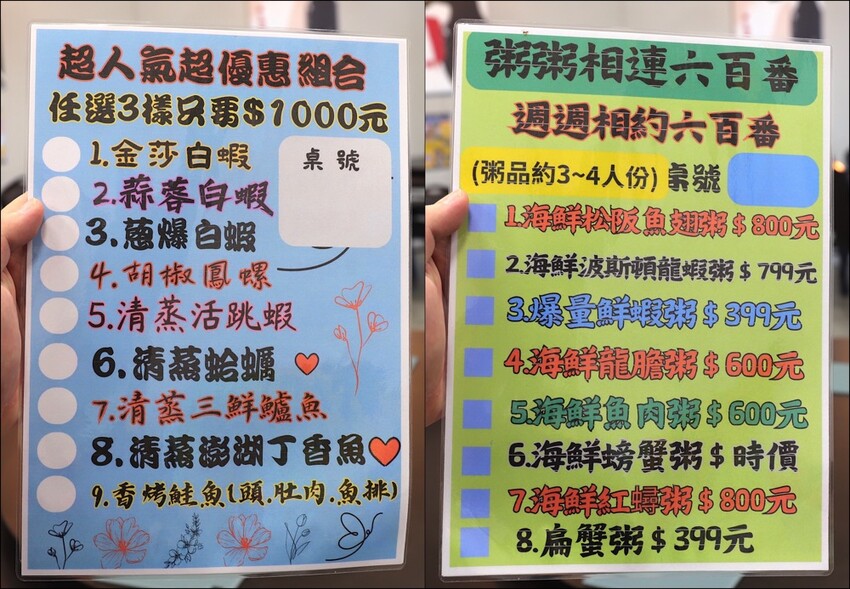 超人氣超優惠組合
任選3樣只要$1000元
桌號
1.金莎白蝦
2.蒜蓉白蝦
3.蔥爆白蝦
4.胡椒鳳螺
5.清蒸活跳蝦
6.清蒸蛤蠣
7.清蒸三鮮鱸魚
8.清蒸澎湖丁香魚
9.香烤鮭魚(頭.肚肉.魚排)
粥粥相連六百番
週週相約六百番
(粥品約3~4人份) 桌號
1.海鮮松阪魚翅粥$800元
2.海鮮波斯頓龍蝦粥$799元
3.爆量鮮蝦粥$399元
4.海鮮龍膽粥$600元
5.海鮮魚肉粥$600元
6.海鮮螃蟹粥$時價
7.海鮮紅蟳粥$800元
8.扁蟹粥$399元